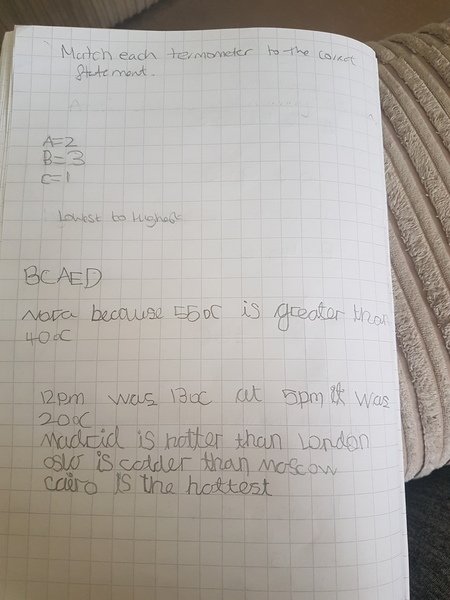 Match each termometer to the corect
statement.
A=2
B=3
C=1
Lowest to Highest
BCAED
Nora because 55oC is greater than
40oC
12pm was 13oC at 5pm it was
20oC
Madrid is hotter than London
oslo is colder than Moscow
cairo is the hottest